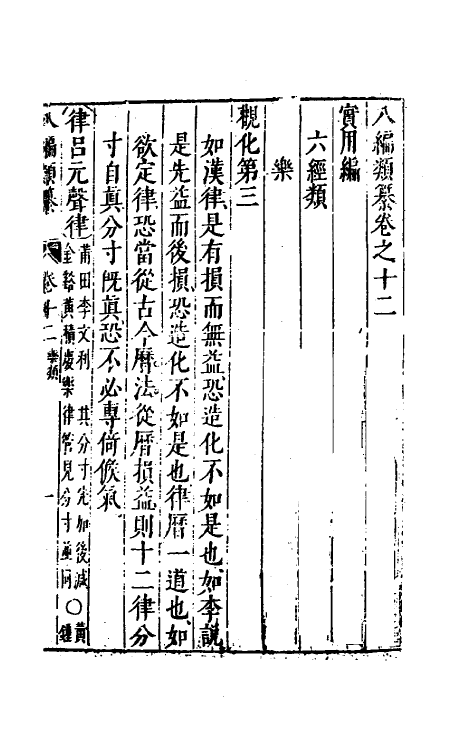 八編類纂卷之十二
實用編
六經類
樂
觀化第三
如漢律是有損而無益恐造化不如是也如李說
是先益而後損恐造化不如是也律曆一道也如
欲定律恐當從古今曆法從曆損益則十二律分
寸自真分寸既真恐不必專倚候氣
律呂元聲律
莆田李文利 其分寸先加後減○黃
金谿黃積慶樂律管見分寸並同 鍾
八編類纂 卷十二 樂類 一